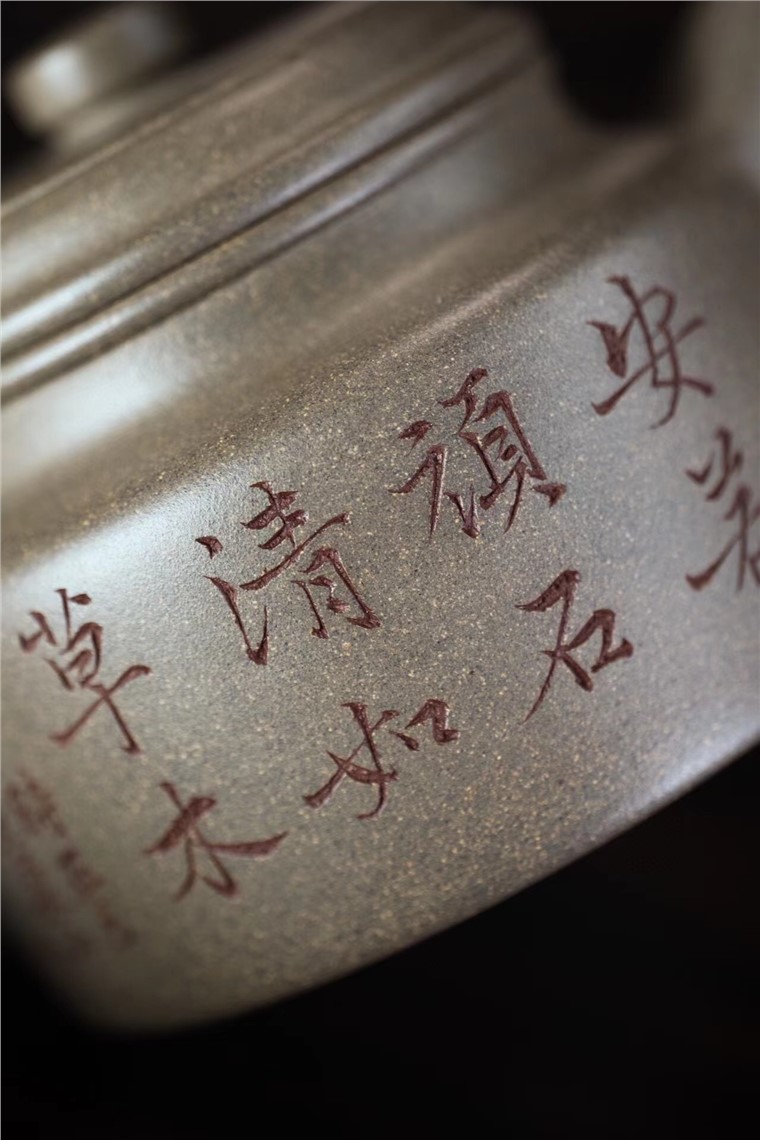 安若
頑石
清如
草木